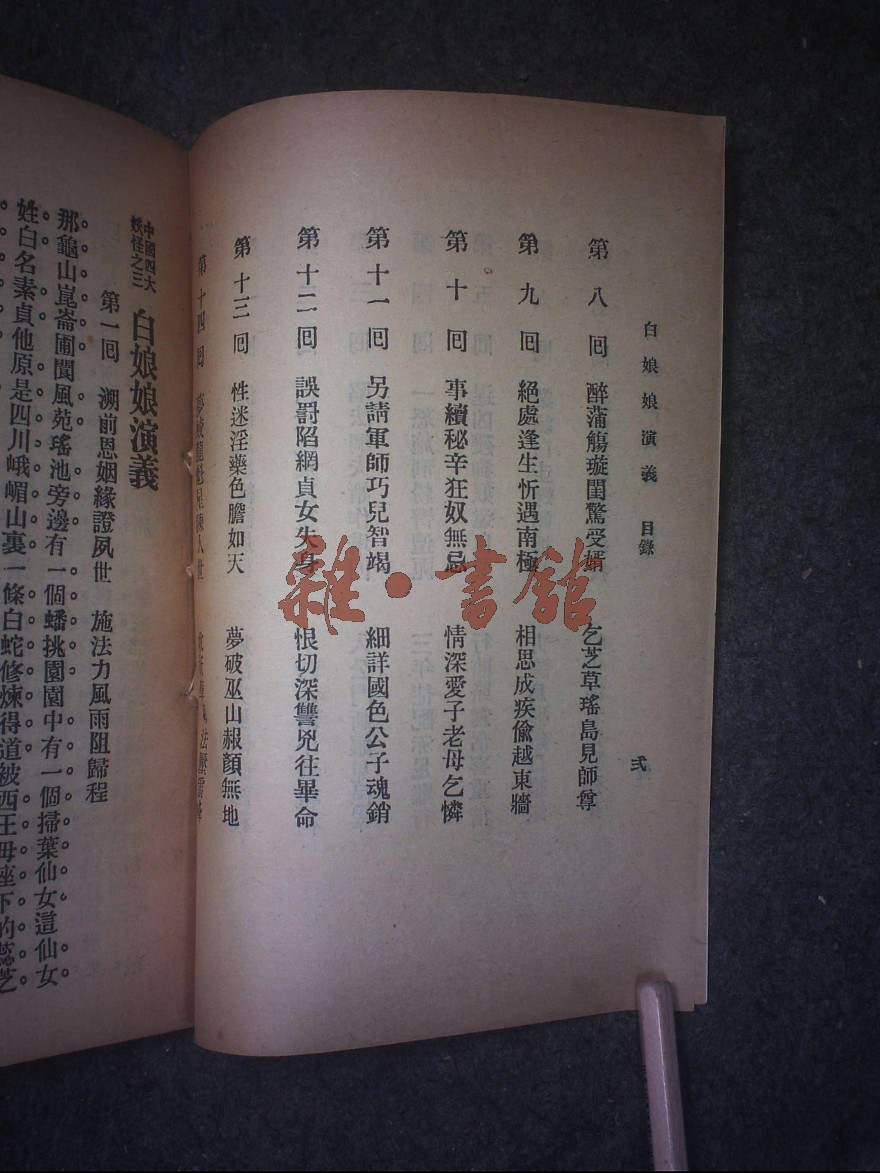 白娘娘演義 目錄 弍
第八回 醉蒲觴璇閨驚受婿 乞芝草瑤島見師尊
第九回 絕處逢生忻遇南極 相思成疾偸越東牆
第十回 事續秘辛狂奴無忌 情深愛子老母乞憐
第十一回 另請軍師巧兒智竭 細詳國色公子魂銷
第十二回 誤罸陷網貞女失身 恨切深讐兇往畢命
第十三回 性迷淫藥色膽如天 夢破巫山赧顏無地
第十四回
中國四大妖怪之三 白娘娘演義
第一回 溯前恩姻緣證夙世 施法力風雨阻歸程
那龜山崑崙圃閬風苑瑤池旁邊有一個蟠挑園園中有一個掃葉仙女這仙女
姓白名素貞他原是四川峨嵋山裏一條白蛇修煉得道被西王母座下的蕊芝
雜·書館